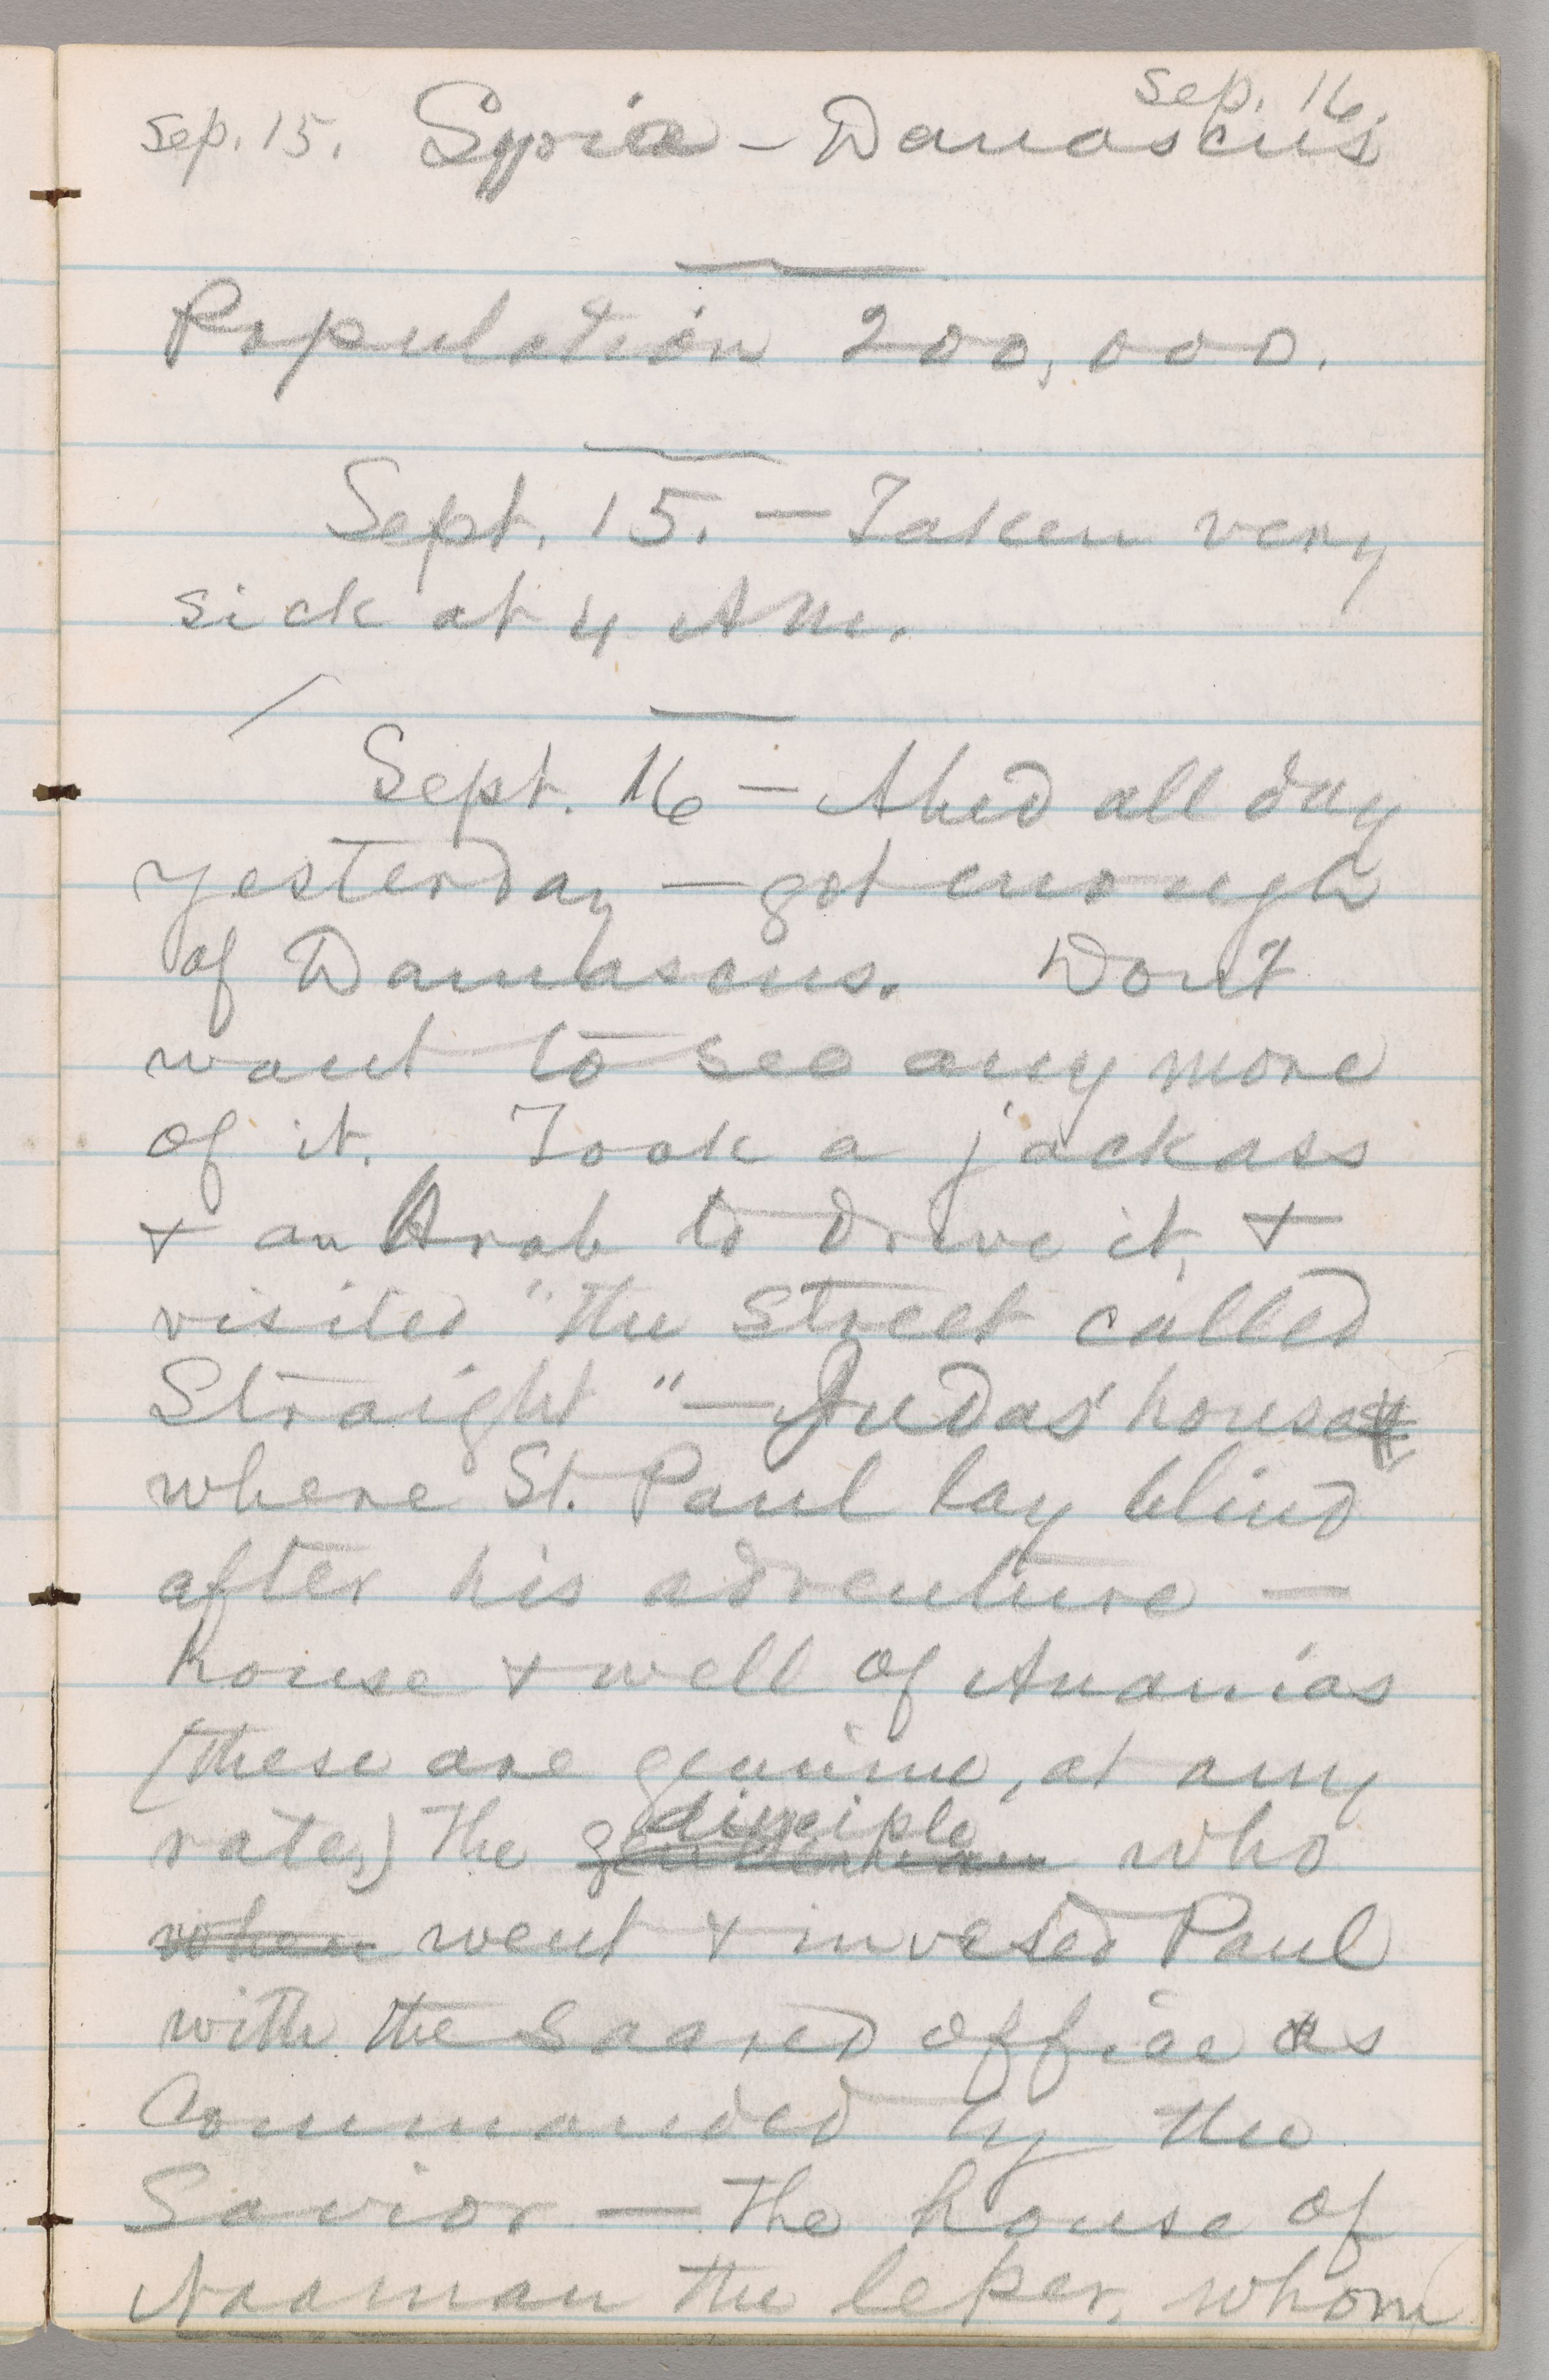 Sep. 15. Syria – Damascus Sep. 16.
Population 200,000.
Sept. 15. – Taken very
sick at 4 AM.
Sept. 16 – Abed all day
yesterday – got enough
of Damascus. Don't
want to see any more
of it. Took a jackass
& an Arab to drive it, &
visited "the Street called
Straight" – Judas' house
where St. Paul lay blind
after his adventure –
house & well of Ananias
(these are genuine, at any
rate,) The gentleman disciple who
when went & invested Paul
with the sacred office as
Commanded by the
Savior – The house of
Naaman the leper, whom